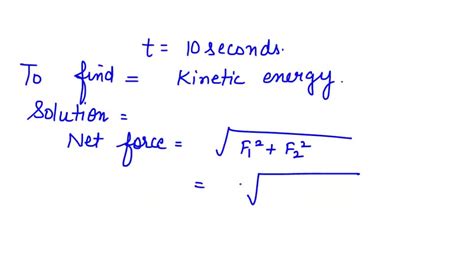 t = 10 seconds.
To find = Kinetic energy.
Solution =
Net force = √F₁² + F₂²
= √